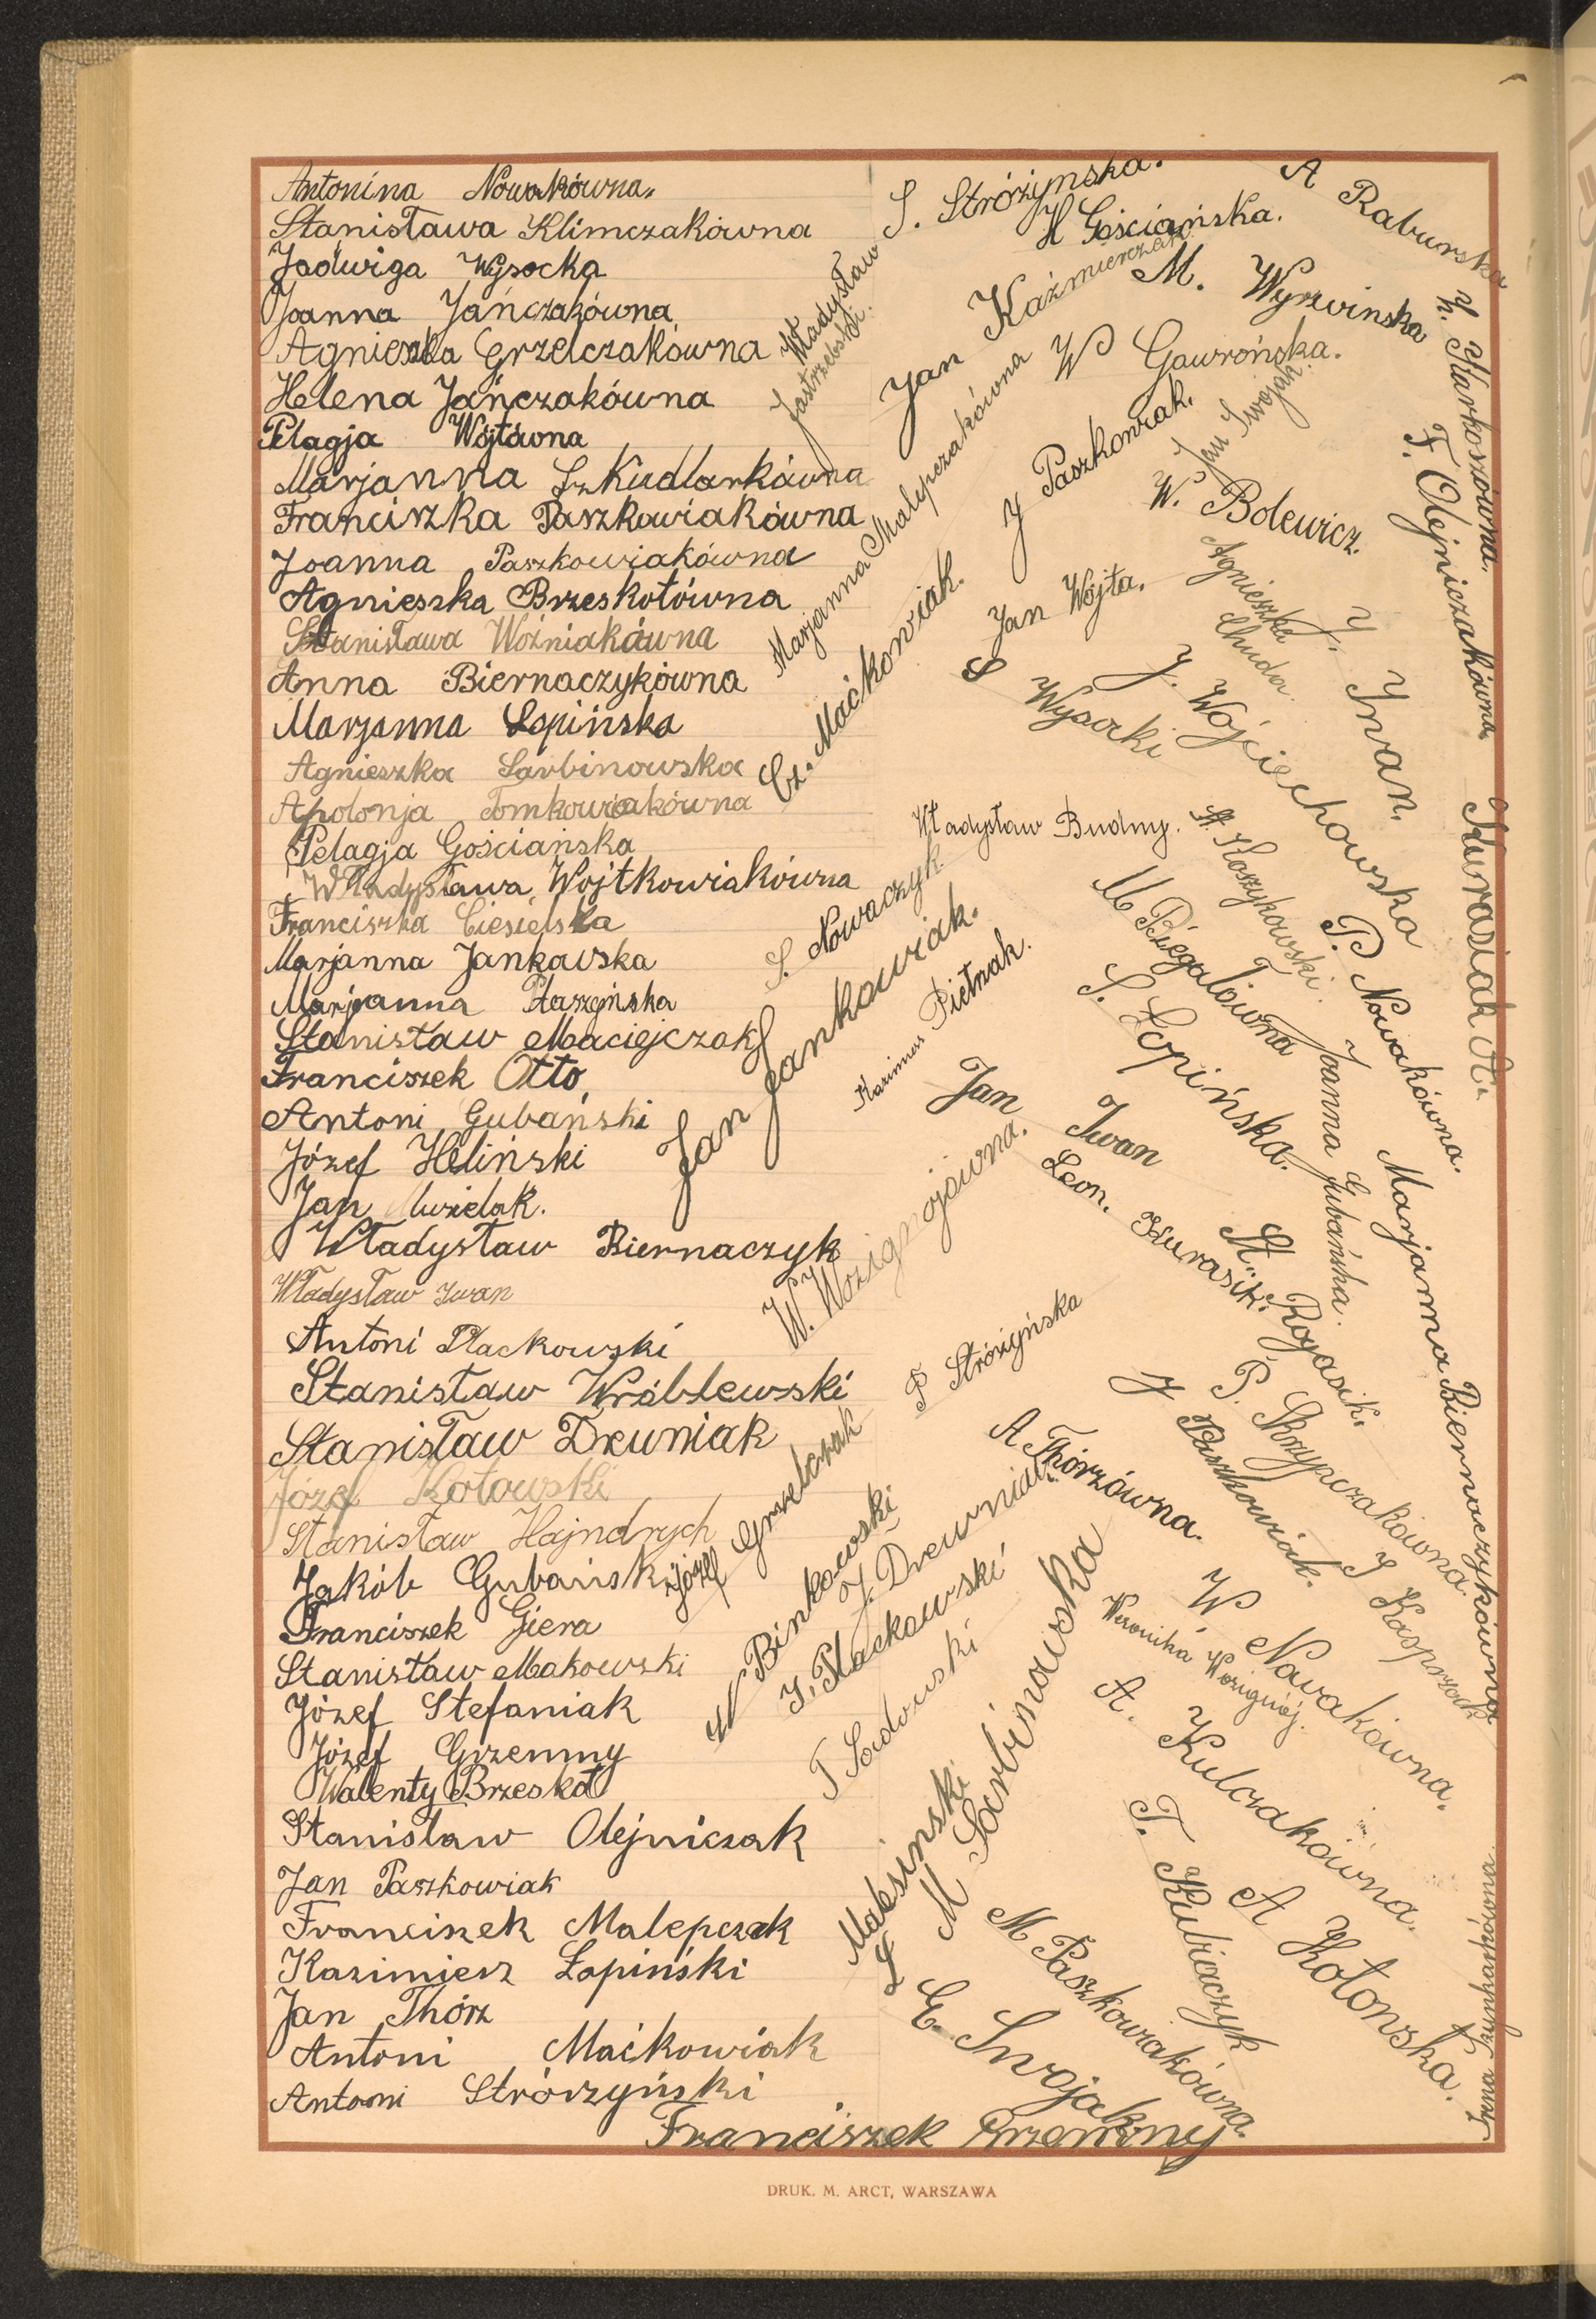 Antonina Nowakówna.
Stanisława Klimczakówna
Jadwiga Wysocka
Joanna Jańczakówna
Agnieszka Grzelczakówna
Helena Jańczakówna
Pelagja Wójtówna
Marjanna Szkudlarkówna
Franciszka Paszkowiakówna
Joanna Paszkowiakówna
Agnieszka Brzeskotówna
Stanisława Woźniakówna
Anna Biernaczykówna
Marjanna Łopińska
Agnieszka Sarbinowska
Apolonja Tomkowiakówna
Pelagja Gościańska
Władysława Wojtkowiakówna
Franciszka Ciesielska
Marjanna Jankowska
Marjanna Ptaszyńska
Stanisław Maciejczak
Franciszek Otto
Antoni Gubański
Józef Heliński
Jan Muzielak.
Władysław Biernaczyk
Władysław Iwan
Antoni Plackowski
Stanisław Wróblewski
Stanisław Drewniak
Józef Kotowski
Stanisław Hajndrych
Jakób Gubański
Franciszek Giera
Stanisław Makowski
Józef Stefaniak
Józef Grzemny
Walenty Brzeskot
Stanisław Olejniczak
Jan Paszkowiak
Franciszek Malepczak
Kazimierz Łopiński
Jan Thórz
Antoni Maćkowiak
Antoni Stróżyński
Franciszek Przemny
S. Stróżymska.
H Gościańska.
A Raburska
Władysław
Jastrzebski.
Jan Kaźmierczak
M. Wyrwinska
W Gawrońska.
K. Karkoszówna.
F. Olejniczakówna.
Marjanna Malepczakówna
J Paszkowiak.
Jan Swojak
W. Bolewicz.
Cz. Maćkowiak.
Jan Wojta.
S Wysocki
Agnieszka
Chuda.
J. Iwan.
J. Wojciechowska
Kurasiak A.
Władysław Budny.
St. Koszykowski.
S. Nowaczyk
Jan Jankowiak.
Kazimierz Pietrzak.
M Biegałówna
P. Nowakówna.
S. Łopińska.
Joanna Gubańska.
Jan Iwan
Leon. Kurasik.
W. Wozignojówna.
St. Rogasik.
Marjanna Biernaczykówna
P Stróżyńska
P. Skrzypczakówna.
J Paszkowiak.
Józef Grzelczak
A Thórzówna.
W Binkowski
J. Drewniak
J. Plackowski
T Sadowski
M Sarbinowska
J Kasprzak
W Nowakówna.
Weronika Wozignój.
A. Kulczakówna.
T. Kubiaczyk
A Kotowska.
L Maksinski
M Paszkowiakówna.
E. Swojak
Irena Szynkarkówna
DRUK. M. ARCT, WARSZAWA